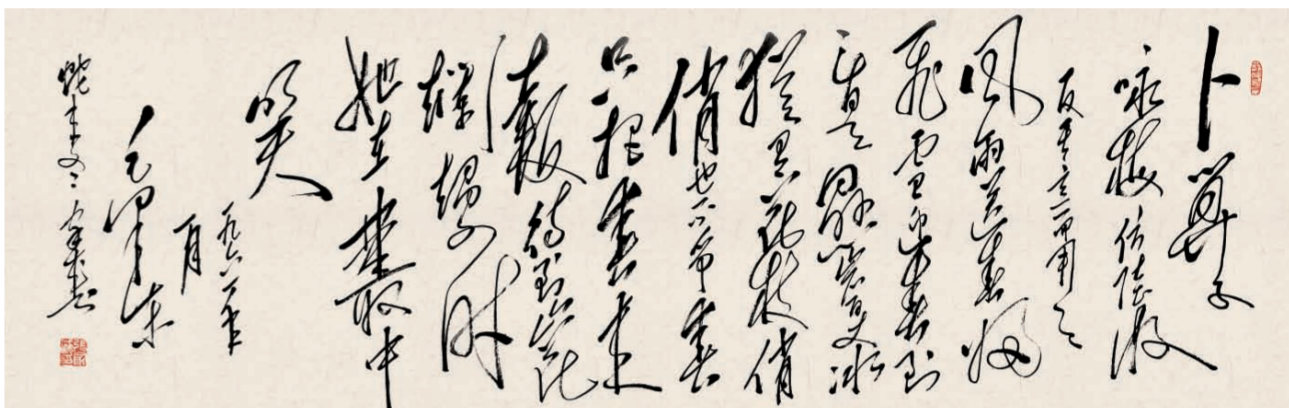 卜算子
咏梅
反其意而用之
风雨送春归
飞雪迎春到
已是悬崖百丈冰
犹有花枝俏
俏也不争春
只把春来
报待到山花
烂漫时
她在丛中
笑
一九六一年
月
毛泽东